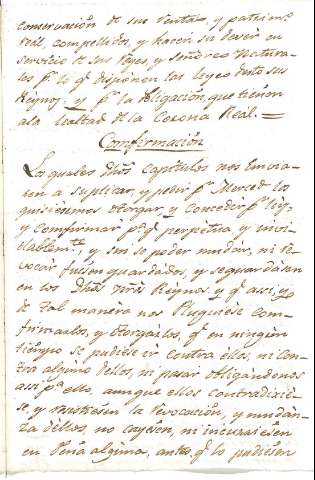 conservación de sus Rentas, y patrimº
Real, compellidos, y hacen su dever en
servicio de sus Reyes, y Señores Natura-
les pr. lo qe. disponen las Leyes de estos sus
Reynos, y pr. la obligación, que tienen
a la lealtad de la Corona Real. =
Comfirmación
Los quales dhôs Capitulos nos Envia-
ron a suplicar, y pedir pr. Merced los
quisiesemos otorgar, y Conceder pr. Ley,
y Confirmar pa. qe. perpetua, y invi-
olablemte., y sin se poder mudar, ni re-
vocar fuesen guardados, y se guardasen
en los Dhôs nrôs Reynos, y qe. assi, y
de tal manera nos Pluguiese Com-
firmarlos, y otorgarlos, qe. en ningun
tiempo se pudiese ir contra ellos, ni con-
tra alguno dellos, ni pasar obligandonos
assi pa. ello, aunque ellos contradixie-
se, y la Revocación, y mudan-
za dellos, no cayesen, ni incurriesen
en Pena alguna, antes qe. lo pudiesen